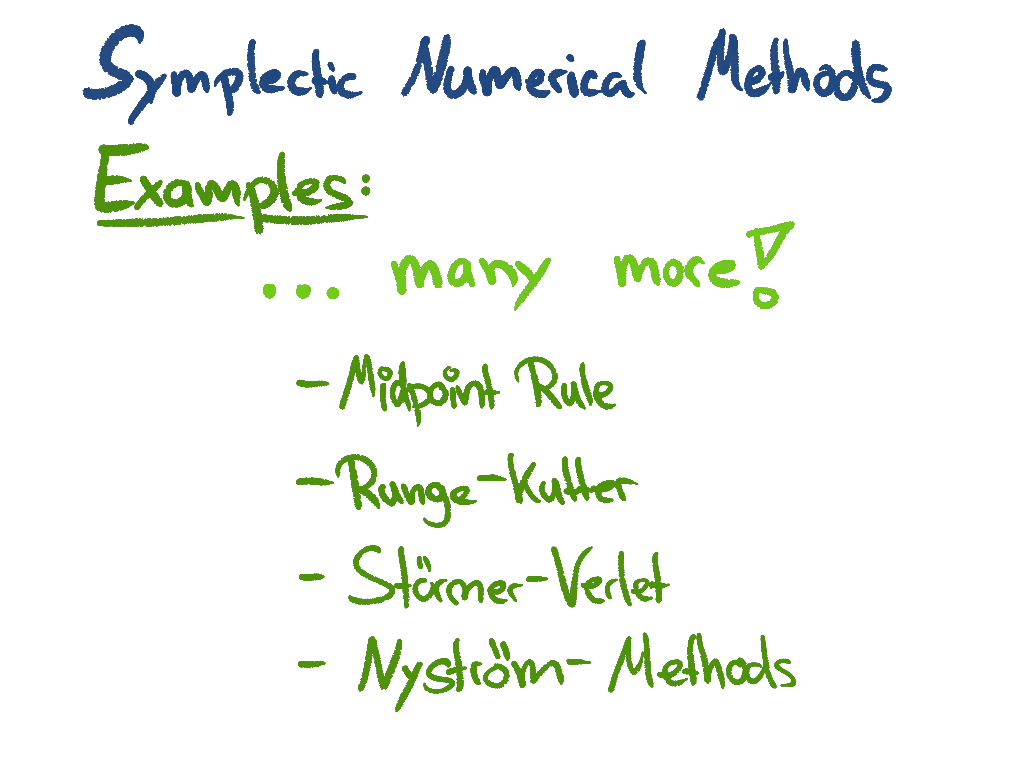 Symplectic Numerical Methods
Examples:
... many more!
- Midpoint Rule
- Runge-Kutter
- Störmer-Verlet
- Nyström-Methods